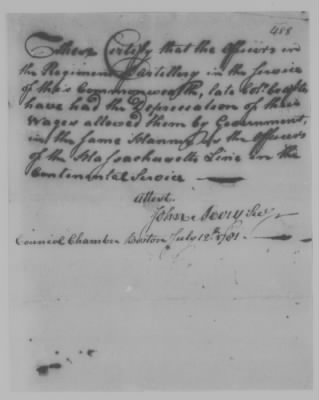 488
These Certify that the Officers in
the Regiment of Artillery in the Service
of this Commonwealth, late Colº
have had the Depreciation of their
Wages allowed them by Government,
in the same Manner as the Officers
of the Massachusetts Line in the
Continental Service
Attest.
John Avery Secy
Council Chamber Boston July 12th 1781.